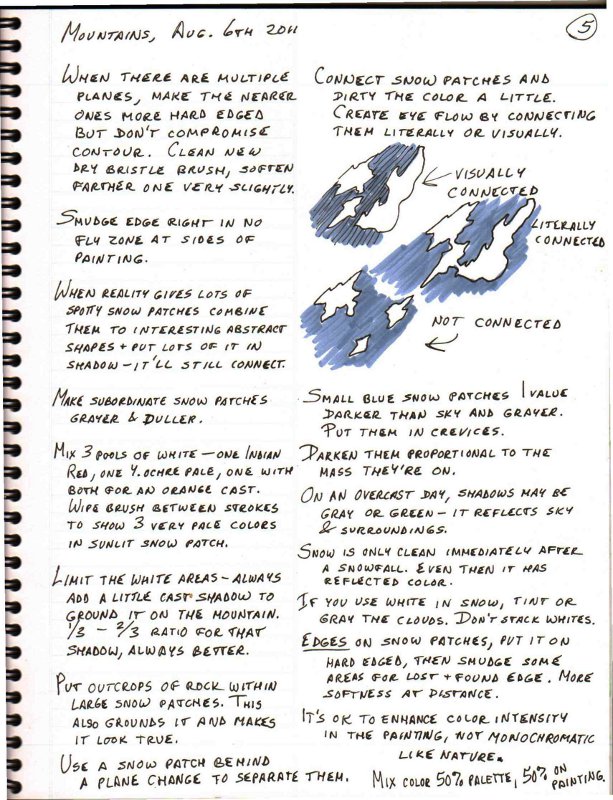 Mountains, Aug. 6th 2011
5
When there are multiple
planes, make the nearer
ones more hard edged
but don't compromise
contour. Clean new
dry bristle brush, soften
farther one very slightly.
Smudge edge right in no
fly zone at sides of
painting.
When reality gives lots of
spotty snow patches combine
them to interesting abstract
shapes + put lots of it in
shadow – it'll still connect.
Make subordinate snow patches
grayer & duller.
Mix 3 pools of white – one Indian
Red, one Y. Ochre Pale, one with
both for an orange cast.
Wipe brush between strokes
to show 3 very pale colors
in sunlit snow patch.
Limit the white areas – always
add a little cast shadow to
ground it on the mountain.
1/3 – 2/3 ratio for that
shadow, always better.
Put outcrops of rock within
large snow patches. This
also grounds it and makes
it look true.
Use a snow patch behind
a plane change to separate them.
Connect snow patches and
dirty the color a little.
Create eye flow by connecting
them literally or visually.
Visually
connected
Literally
connected
Not connected
Small blue snow patches 1 value
darker than sky and grayer.
Put them in crevices.
Darken them proportional to the
mass they're on.
On an overcast day, shadows may be
gray or green – it reflects sky
& surroundings.
Snow is only clean immediately after
a snowfall. Even then it has
reflected color.
If you use white in snow, tint or
gray the clouds. Don't stack whites.
Edges on snow patches, put it on
hard edged, then smudge some
areas for lost + found edge. More
softness at distance.
It's ok to enhance color intensity
in the painting, not monochromatic
like nature.
Mix color 50% palette, 50% on
painting.